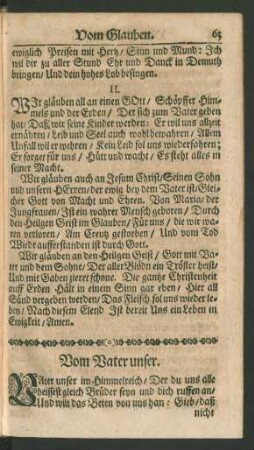 Vom Glauben. 65
ewiglich Preisen mit Hertz / Sinn und Mund: Ich
wil dir zu aller Stund Ehr und Danck in Demuth
bringen / Und dein hohes Lob besingen.
II.
WIr gläuben all an einen GOtt / Schöpffer Him-
mels und der Erden / Der sich zum Vater geben
hat / Daß wir seine Kinder werden: Er wil uns allzeit
ernähren / Leib und Seel auch wohl bewahren / Allem
Unfall wil er wehren / Kein Leid sol uns wiederfahren;
Er sorget für uns / Hütt und wacht / Es steht alles in
seiner Macht.
Wir gläuben auch an Jesum Christ / Seinen Sohn
und unsern HErren / der ewig bey dem Vater ist / Glei-
cher Gott von Macht und Ehren. Von Maria / der
Jungfrauen / Ist ein wahrer Mensch geboren / Durch
den Heilgen Geist im Glauben / Für uns / die wir wa-
ren verloren / Am Creutz gestorben / Und vom Tod
Wiedr aufferstanden ist durch Gott.
Wir gläuben an den Heilgen Geist / Gott mit Va-
ter und dem Sohne / Der aller Blöden ein Tröster heist /
Und mit Gaben zieret schone. Die gantze Christenheit
auff Erden Hält in einem Sinn gar eben / Hier all
Sünd vergeben werden / Das Fleisch sol uns wieder le-
ben / Nach diesem Elend Ist bereit Uns ein Leben in
Ewigkeit / Amen.
Vom Vater unser.
VAter unser im Himmelreich / Der du uns alle
heissest gleich Brüder seyn und dich ruffen an /
Und wilt das Beten von uns han: Gieb / daß
nicht